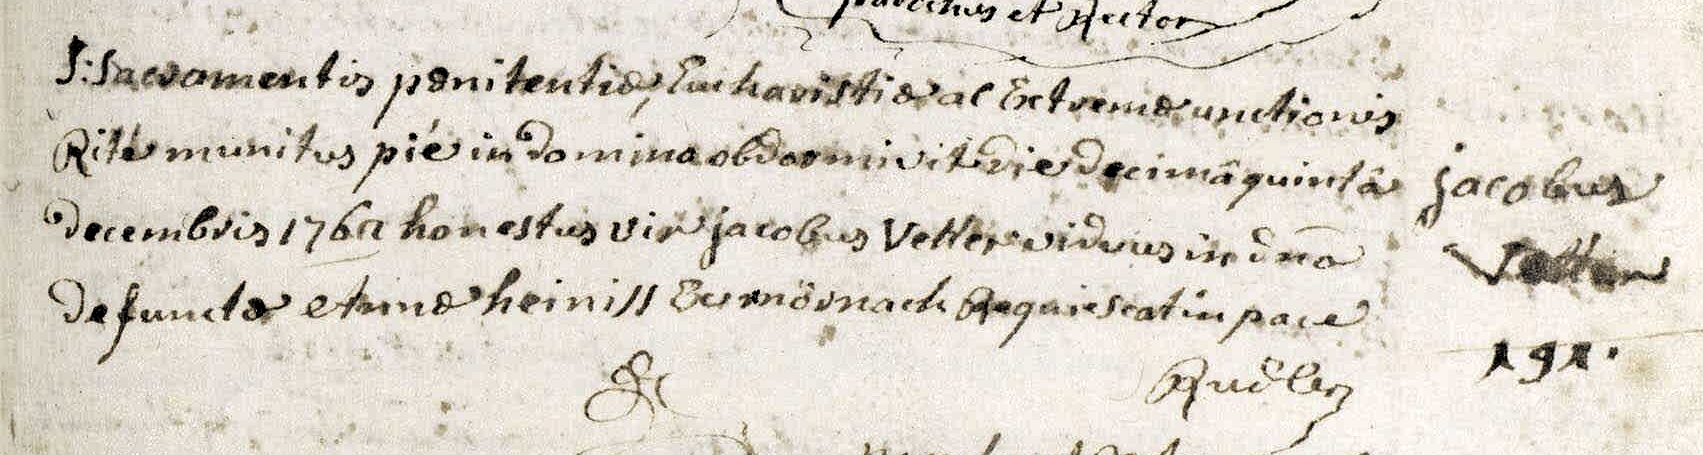 parochus et Rector
S: Sacramentis pœnitentiæ, Eucharistiæ ac Extremæ unctionis
Rité munitus pié in domino obdormivit die decimâ quintâ
decembris 176 honestus vir jacobus Vetter viduus in dno
defunctæ heiniss Ex mörnach Requiescat in pace
Rudler
jacobus
Vetter
191.